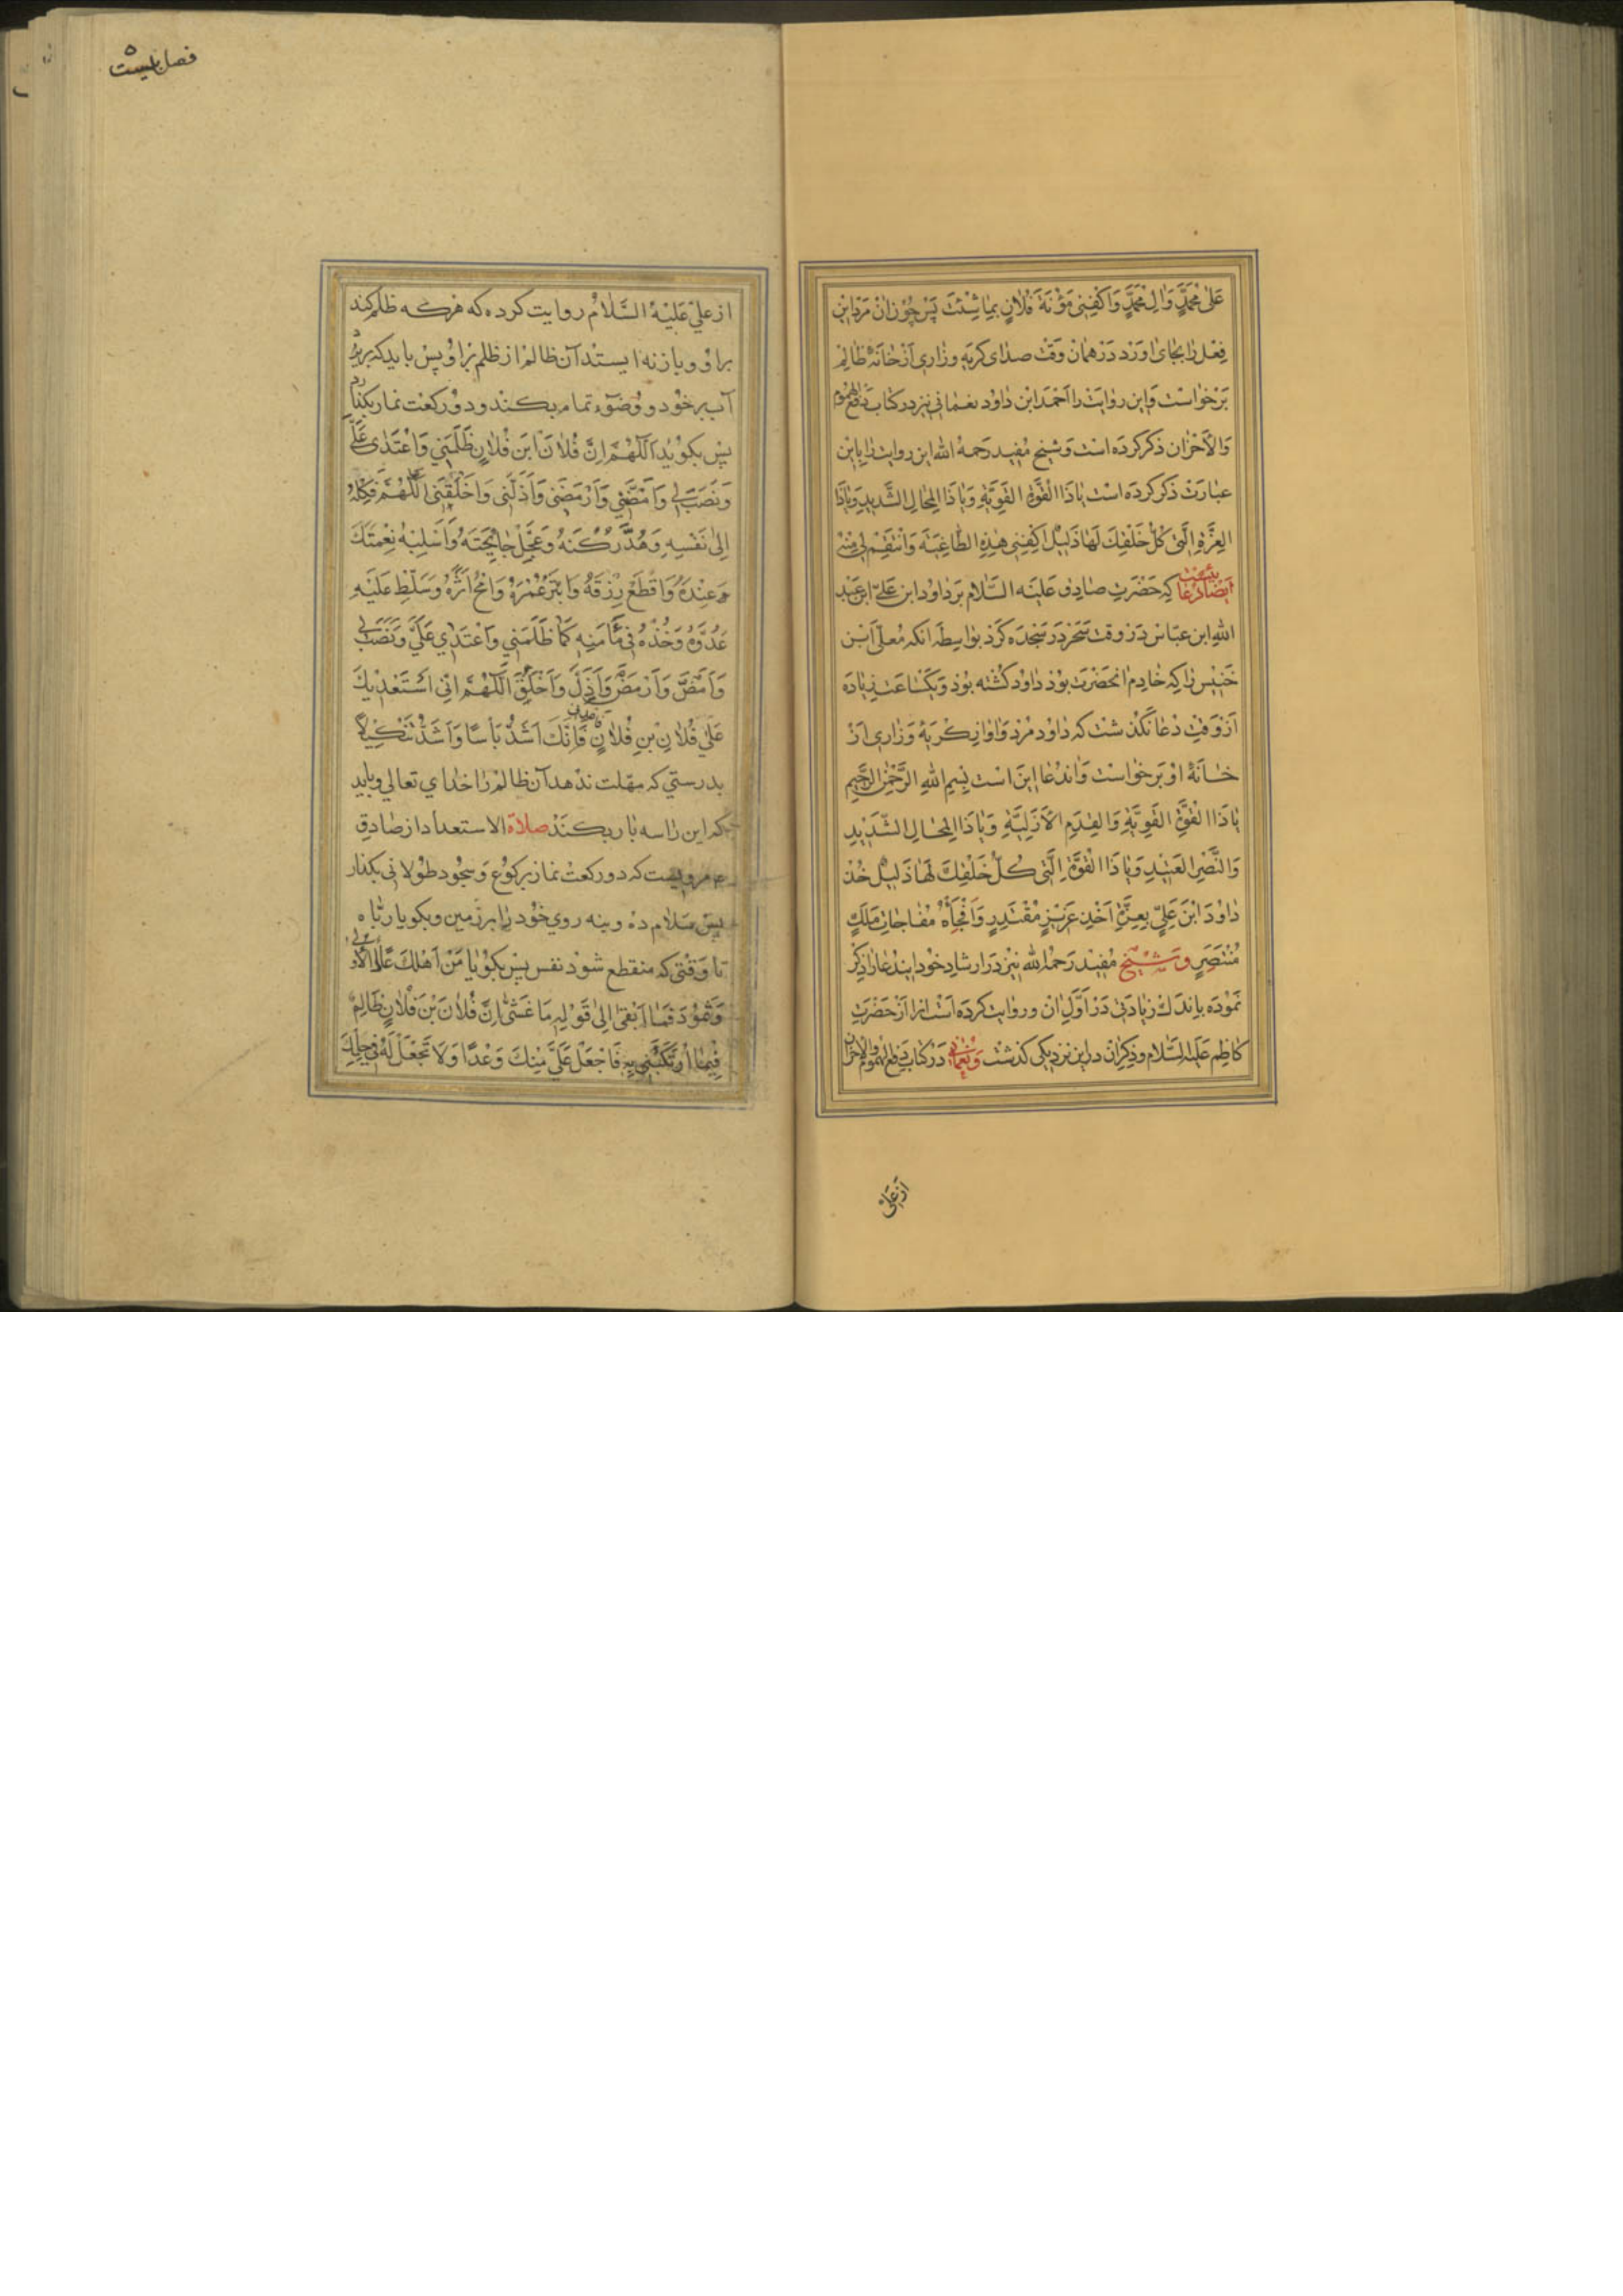 عَلىٰ مُحَمَّدٍ وَالِ مُحَمَّدٍ وَاكْفِنِى مَؤُنَةَ فُلانٍ بِمَا شِئْتَ پس چون ان مرد این
فعل را بجای اورد در همان وقت صدای کریه وزاری از خانهٔ ظالم
برخواست واین روایت را احمد ابن داود نعمانی نیز در کتاب دفع الهموم
والاحزان ذکر کرده است وشیخ مفید رحمه الله این روایت را باین
عبارت ذکر کرده است يَاذَا الْقُوَّةِ الْقَوِيَّةِ وَيَاذَا الْمِحَالِ الشَّدِيدِ وَيَاذَا
الْعِزَّةِ الَّتى كُلُّ خَلْقِكَ لَهَا ذَلِيلٌ اكْفِنِى هٰذِهِ الطَّاغِيَةَ وَانْتَقِمْ لِى مِنْهُ
ایضا دعائیست که حضرت صادق علیه السّلام بر داود ابن علیّ ابن عبد
الله ابن عباس در وقت سحر در سجده کرد بواسطه انکه معلّی ابن
خنیس را که خادم انحضرت بود داود کشته بود ویکساعت زیاده
از وقت دعا نکذشت که داود مرد واواز کریه وزاری از
خانهٔ او برخواست واندعا این است بِسْمِ اللهِ الرَّحْمٰنِ الرَّحِيمِ
يَاذَا الْقُوَّةِ الْقَوِيَّةِ وَالْقِدَمِ الْاَزَلِيَّةِ وَيَاذَا الْمِحَالِ الشَّدِيدِ
وَالنَّصْرِ الْعَتِيدِ وَيَاذَا الْقُوَّةِ الَّتى كُلُّ خَلْقِكَ لَهَا ذَلِيلٌ خُذْ
دَاوُدَ ابْنَ عَلِىٍّ بِعِزَّةِ اَخْذِ عَزِيزٍ مُقْتَدِرٍ وَافْجَأْهُ مُفَاجَاتَ مَلَكٍ
مُنْتَصِرٍ وشیخ مفید رحمه الله نیز در ارشاد خود ایندعا را ذکر
نموده باندک زیادتی در اوّل ان وروایت کرده است انرا از حضرت
کاظم علیه السّلام وذکر ان در این نزدیکی کذشت ونعمانی در کتاب دفع الهموم والاحزان
از علی
فصل بیست ٥
از علیّ علیه السّلام روایت کرده که هرکه ظلم کند
بر او وباز نه ایستد آن ظالم از ظلم بر او پس باید که بریزد
آب بر خود ووضوء تمام بکند ودو رکعت نماز بکذارد
پس بکوید اَللّٰهُمَّ اِنَّ فُلَانَ ابْنَ فُلَانٍ ظَلَمَنِي وَاعْتَدىٰ عَلَيَّ
وَنَصَبَ لِي وَاَمَضَّنِي وَاَرْمَضَنِي وَاَذَلَّنِي وَاَخْلَقَنِي اَللّٰهُمَّ فَكِلْهُ
اِلىٰ نَفْسِهِ وَهُدَّ رُكْنَهُ وَعَجِّلْ جَائِحَتَهُ وَاَسْلِبْهُ نِعْمَتَكَ
عِنْدَهُ وَاقْطَعْ رِزْقَهُ وَابْتَرْ عُمْرَهُ وَامْحُ اَثَرَهُ وَسَلِّطْ عَلَيْهِ
عَدُوَّهُ وَخُذْهُ فِي مَأْمَنِهِ كَمَا ظَلَمَنِي وَاعْتَدىٰ عَلَيَّ وَنَصَبَ لِي
وَاَمَضَّ وَاَرْمَضَ وَاَذَلَّ وَاَخْلَقَ اَللّٰهُمَّ اِنِّي اَسْتَعْدِيكَ
عَلىٰ فُلَانِ بْنِ فُلَانٍ فَاِنَّكَ اَشَدُّ بَأْسًا وَاَشَدُّ تَنْكِيلًا
بدرستی که مهلت ندهد آن ظالم را خدای تعالی وباید
که این را سه بار بکند صلاة الاستعداد از صادق
ع مرویست که دو رکعت نماز برکوع وسجود طولانی بکذار
پس سلام ده وبنه روی خود را بر زمین وبکو یا ربّاه
تا وقتی که منقطع شود نفس پس بکو يَا مَنْ اَهْلَكَ عَادًا الْاُولىٰ
وَثَمُودَ فَمَا اَبْقىٰ اِلىٰ قَوْلِهِ مَا غَشّىٰ اِنَّ فُلَانَ بْنَ فُلَانٍ ظَالِمٌ
فِيمَا ارْتَكَبَنِي بِهِ فَاجْعَلْ عَلَيَّ مِنْكَ وَعْدًا وَلَا تَجْعَلْ لَهُ فِي حِلْمِكَ